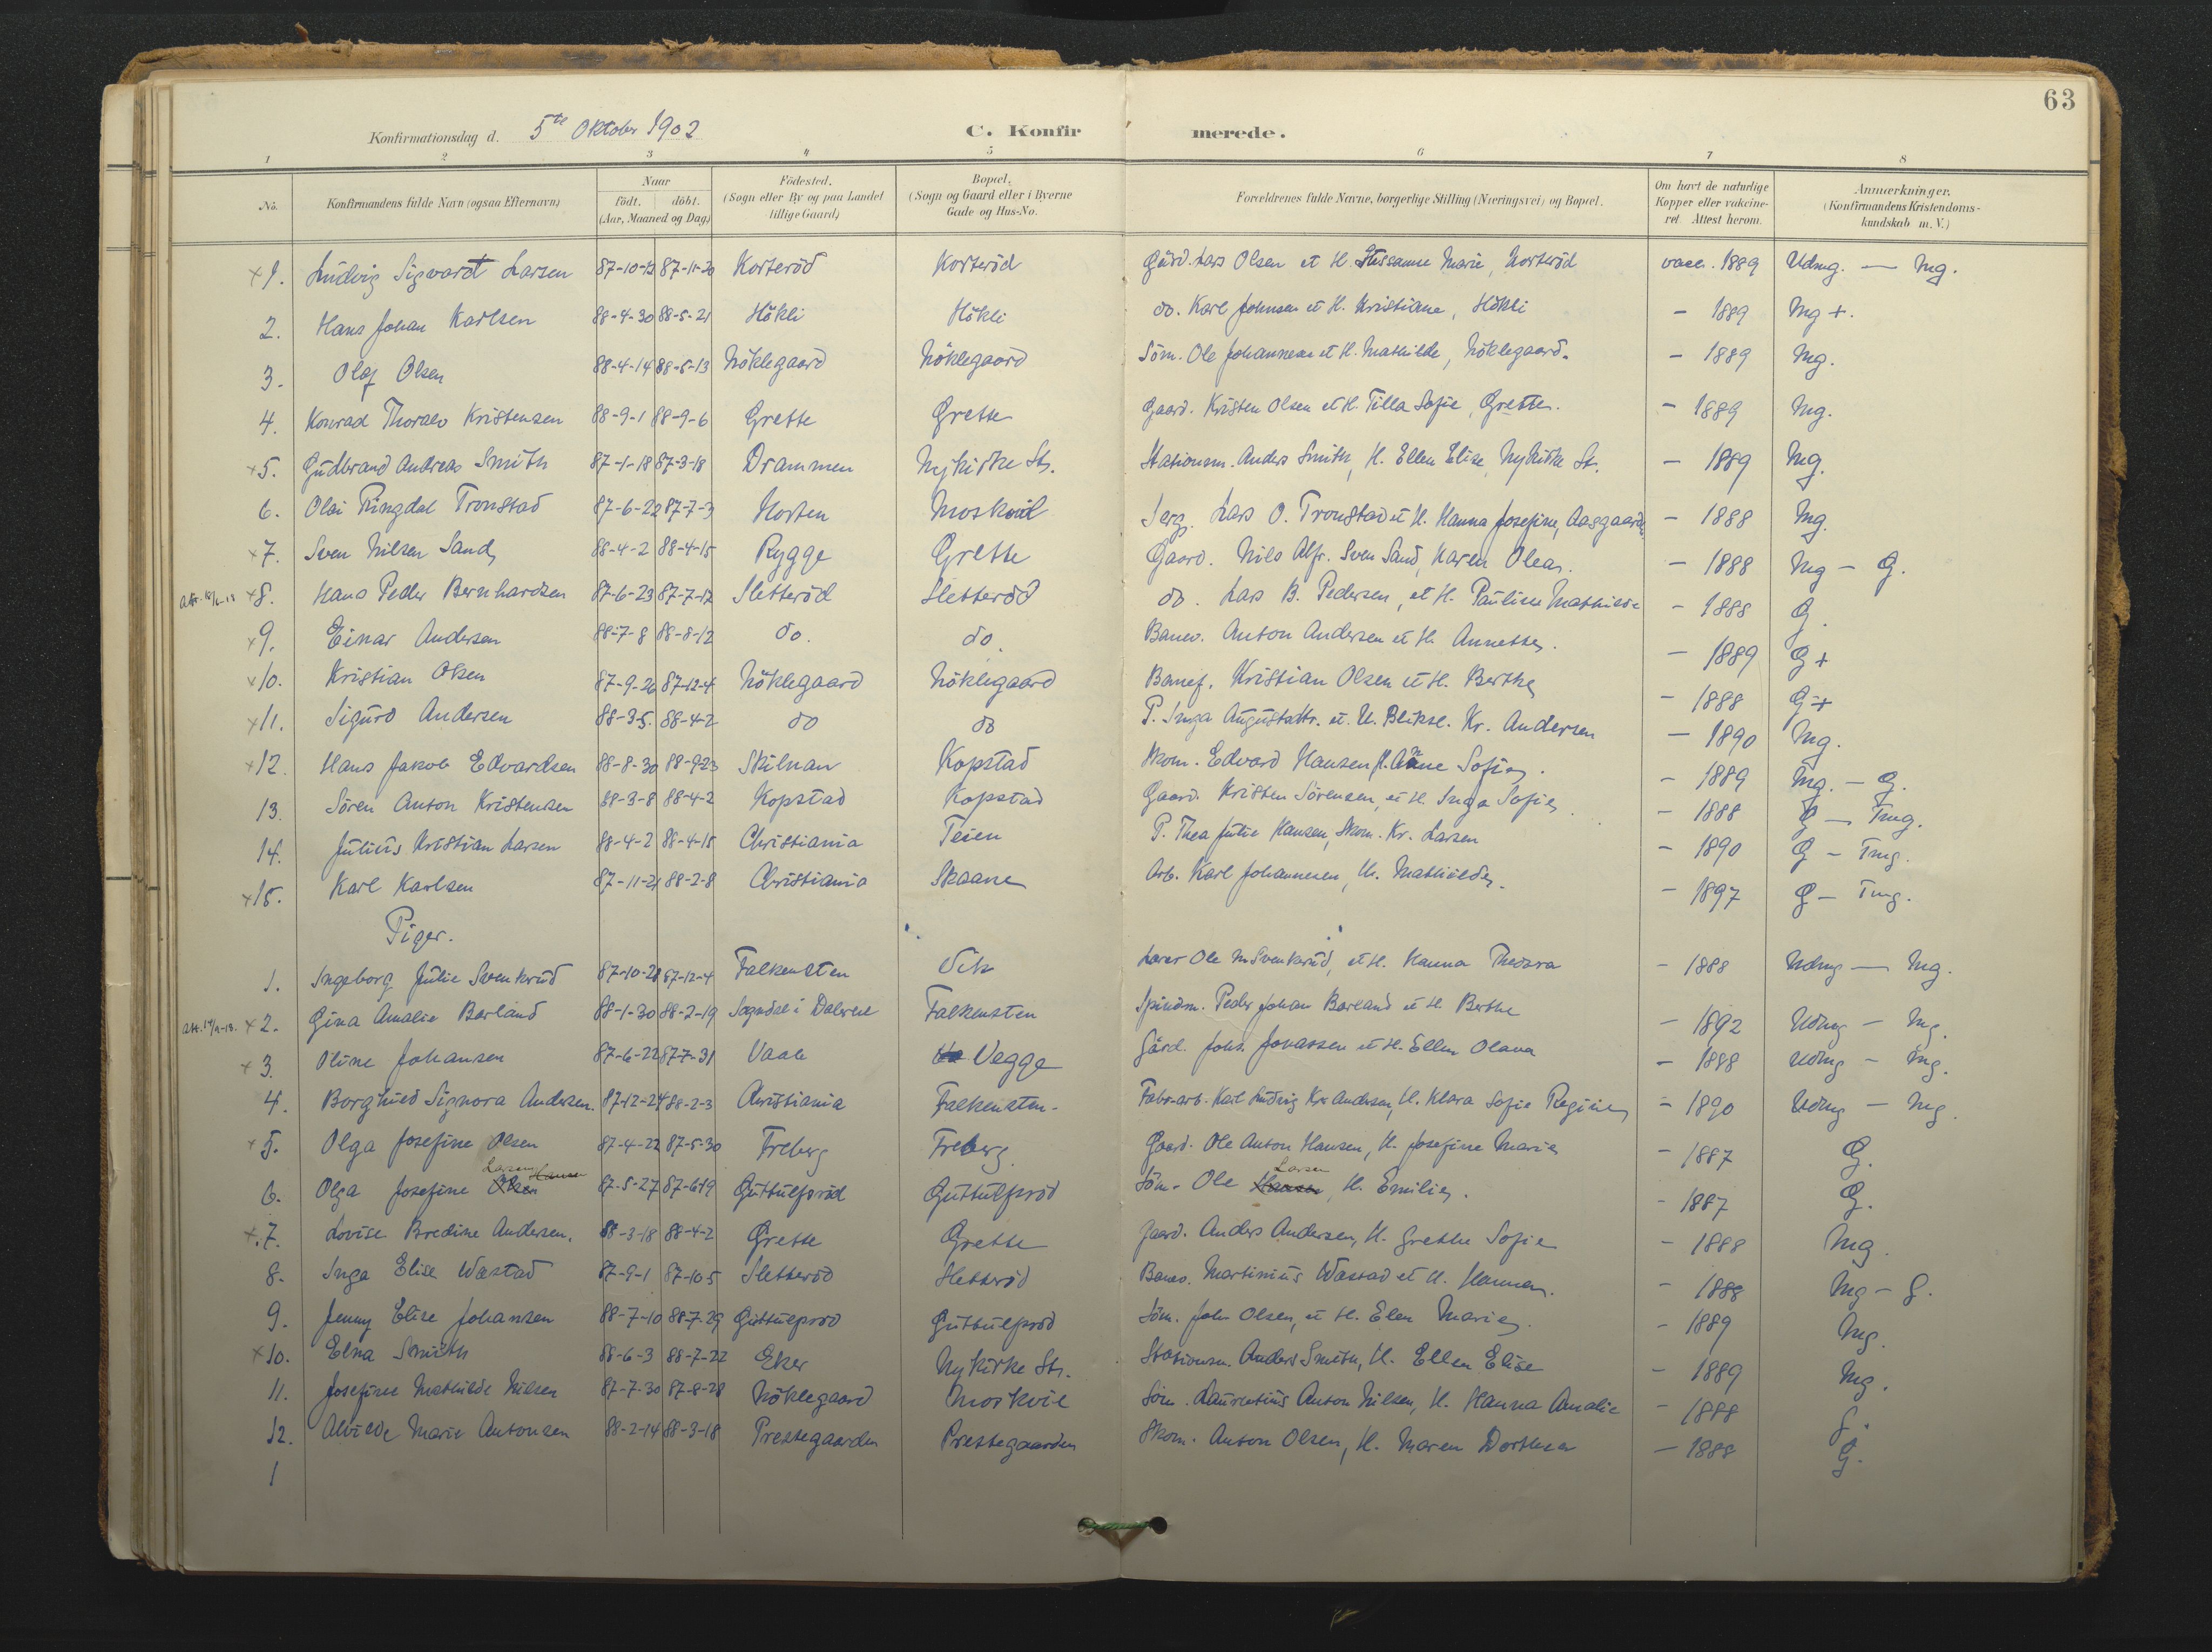 63
Konfirmationsdag d. 5te Oktober 1902 C. Konfirmerede.
1 2 3 4 5 6 7 8
No. Konfirmandens fulde Navn (ogsaa Efternavn) Naar födt. döbt. (Aar, Maaned og Dag) Födested. (Sogn eller By og paa Landet tillige Gaard) Bopæl. (Sogn og Gaard eller i Byerne Gade og Hus-No. Forældrenes fulde Navne, borgerlige Stilling (Næringsvei) og Bopæl. Om havt de naturlige Kopper eller vakcineret. Attest herom. Anmærkninger. (Konfirmandens Kristendomskundskab m. V.)
×1. Ludvig Sigvardt Larsen 87-10-13 87-11-20 Korteröd Korteröd Gård. Lars Olsen et H. Marie, Korteröd vacc. 1889 Udmg. — Mg.
2. Hans Johan Karlsen 88-4-30 88-5-21 Hökli Hökli do. Karl Johnsen et H. Kristiane, Hökli - 1889 Mg +.
3. Olaf Olsen 88-4-14 88-5-13 Nöklegaard Nöklegaard Söm. Ole Johannesen et H. Mathilde, Nöklegaard. - 1889 Mg.
4. Konrad Thoralv Kristensen 88-9-1 88-9-6 Grette Grette Gaard. Kristen Olsen et H. Tilla Sofie, Grette. - 1889 Mg.
×5. Gudbrand Andreas Smith 87-1-18 87-3-18 Drammen Nykirke St. Stationsm. Anders Smith, H. Ellen Elise, Nykirke St. - 1889 Mg.
6. Olai Ringdal Tronstad 87-6-22 87-7-3 Horten Moskvil Serg. Lars O. Tronstad et H. Hanna Josefine, Aasgaard - 1888 Mg.
×7. Sven Nilsen Sand 88-4-2 88-4-15 Rygge Grette Gaard. Nils Alfr. Sven Sand, Karen Olea. - 1888 Mg - G.
×8. Hans Peder Bernhardsen 87-6-23 87-7-17 Sletteröd Sletteröd do. Lars B. Pedersen, et H. Pauline Mathilde - 1888 G.
×9. Einar Andersen 88-7-8 88-8-12 do. do. Banev. Anton Andersen et H. Annette. - 1889 G +
×10. Kristian Olsen 87-9-26 87-12-4 Nöklegaard Nöklegaard Banef. Kristian Olsen et H. Berthe - 1888 G +
×11. Sigurd Andersen 88-3-5. 88-4-2 do do P. Inga Augusta et. U. Bliksl. Kr. Andersen - 1890 Mg.
×12. Hans Jakob Edvardsen 88-8-30 88-9-23 Skilnan Kopstad Skom. Edvard Hansen H. Anne Sofie. - 1889 Mg. - G.
13. Sören Anton Kristensen 88-3-8 88-4-2 Kopstad Kopstad Gaard. Kristen Sörensen, et H. Inga Sofie. - 1888 G — Tmg.
14. Julius Kristian Larsen 88-4-2 88-4-15 Christiania Teien P. Thea Julie Hansen, Skom. Kr. Larsen - 1890 G - Tmg.
×15. Karl Karlsen 87-11-21 88-2-8 Christiania Skaane Arb. Karl Johannesen, H. Mathilde. - 1897 G - Tmg.
Piger.
1. Ingeborg Julie Svenkrud 87-10-28 87-12-4 Falkensten Vik Lærer Ole M Svenkrud, et H. Hanna Theodora - 1888 Udmg — Mg.
×2. Gina Amalie Barland 88-1-30 88-2-19 Sogndal i Dalerne Falkensten Spindm. Peder Johan Barland et H. Berthe - 1892 Udmg - Mg.
×3. Oline Johansen 87-6-22 87-7-31 Vaale Vegge Gård. Johs. Jonassen et H. Ellen Olava - 1888 Udmg - Mg.
4. Borghild Signora Andersen. 87-12-24 88-2-3 Christiania Falkensten. Fabr.arb. Karl Ludvig Kr. Andersen, H. Klara Sofie Regine - 1890 Udmg - Mg.
×5. Olga Josefine Olsen 87-4-22 87-5-30 Freberg Freberg Gaard. Ole Anton Hansen, H. Josefine Marie - 1887 G.
6. Olga Josefine Olsen Larsen Hansen 87-5-27 87-6-19 Guttulfsröd Guttulfsröd Söm. Ole Hansen Larsen, H. Emilie. - 1887 G.
×7. Lovise Bredine Andersen. 88-3-18 88-4-2 Grette Grette Gaard. Anders Andersen, H. Grethe Sofie - 1888 Mg.
8. Inga Elise Wastad 87-9-1 87-10-5 Sletteröd Sletteröd Banev. Martinius Wastad et H. Hanna. - 1888 Mg - G.
9. Jenny Elise Johansen 88-7-10 88-7-29 Guttulfsröd Guttulfsröd Söm. Joh. Olsen, et H. Elen Marie. - 1889 Mg.
×10. Elna Smith 88-6-3 88-7-22 Eker Nykirke St. Stationsm. Anders Smith, H. Ellen Elise - 1889 Mg.
11. Josefine Mathilde Nilsen 87-7-30 87-8-28 Nöklegaard Moskvil Söm. Laurentius Anton Nilsen, H. Hanna Amalie - 1888 G.
12. Alvilde Marie Antonsen 88-2-14 88-3-18 Prestegaarden Prestegaarden Skom. Anton Olsen, H. Maren Dorthea - 1888 G.
1